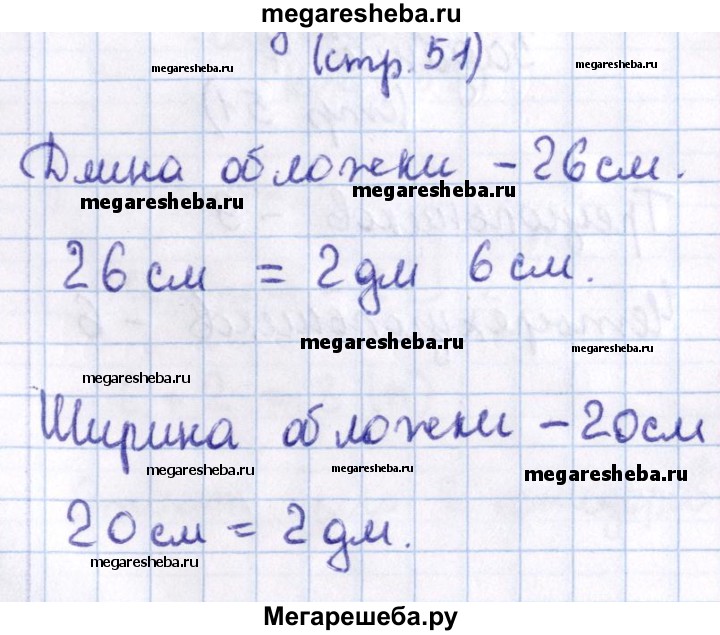 megaresheba.ru
(стр. 51)
megaresheba.ru megaresheba.ru
Длина обложки - 26 см.
megaresheba.ru megaresheba.ru
26 см = 2 дм 6 см.
megaresheba.ru megaresheba.ru
megaresheba.ru
Ширина обложки - 20 см
megaresheba.ru megaresheba.ru megaresheba.ru
20 см = 2 дм.
megaresheba.ru
Мегарешеба.ру